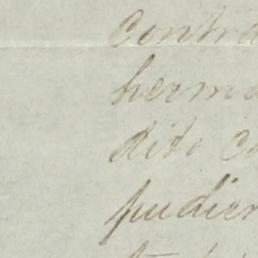 contra
herma
dito co
pudien